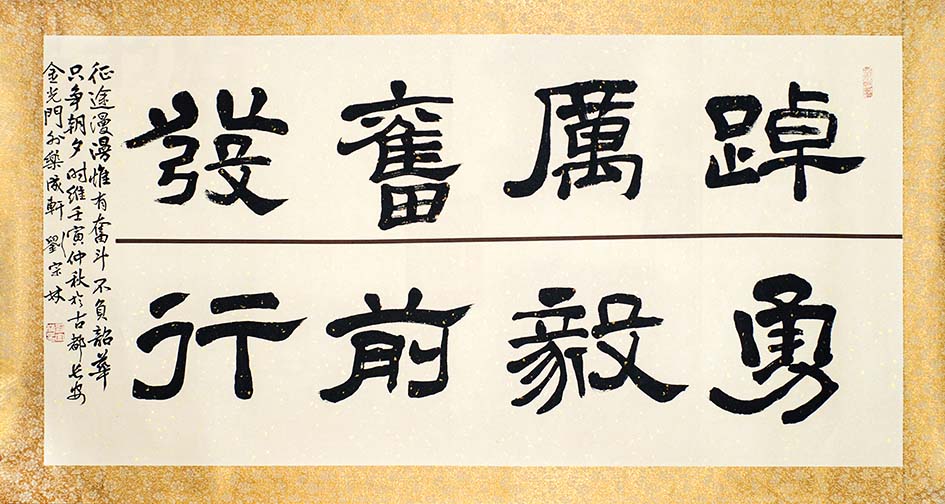 踔厲奮發
勇毅前行
征途漫漫惟有奮斗不負韶華
只争朝夕时維壬寅仲秋於古都长安
金光門外樂成軒 劉宗林